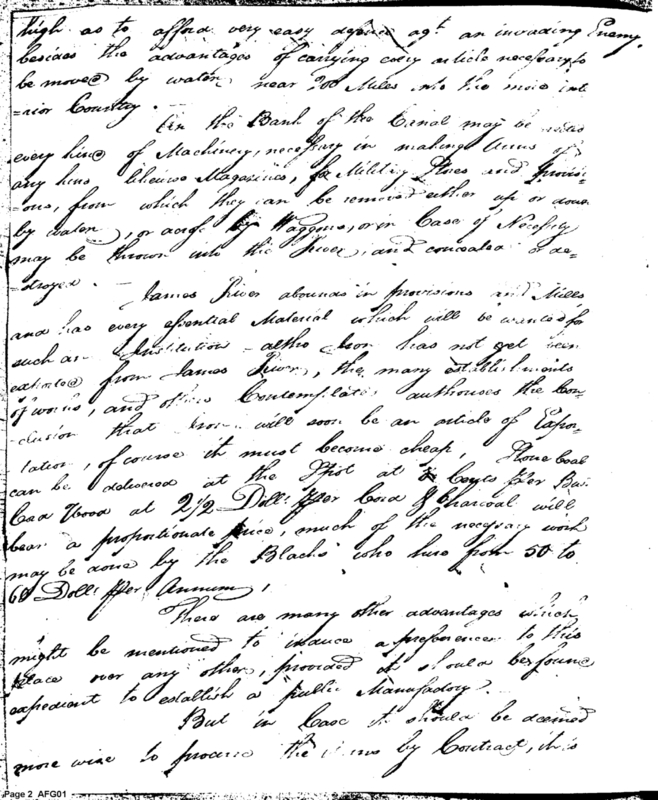 high as to afford very easy defence agt. an invading Enemy,
besides the advantages of carrying every article necessary to
be moved by water near 200 Miles into the more inte
=rior Country. —
On the Bank of the Canal may be
every kind of Machinery, necessary in making Arms of
any kind likewise Magazines, for Military Stores and provisi-
ons, from which they can be removed either up or down
by water, or across by Waggons, or in Case of Necessity
may be thrown into the River, and concealed or de-
=stroyed. —
James River abounds in provisions and Mills
and has every essential Material which will be wanted for
such an Institution altho Iron has not yet been
exported from James River, the many establishments
of works, and others Contemplated authorises the Con-
-clusion that Iron will soon be an article of Expor-
tation, of course it must become cheap, Stone Coal
can be delivered at the Spot at Cents Per Bus
Cord Wood at 2 1/2 Dolls. Per Cord & Charcoal will
bear a proportionate price, much of the necessary work
may be done by the Blacks who hire from 50 to
60 Dolls. Per Annum,
There are many other advantages which
might be mentioned to induce a preference to this
place over any other, provided it should be found
expedient to establish a public Manufactory.
But in Case it should be deemed
more wise to procure the Arms by Contract, it is
Page 2 AFG01